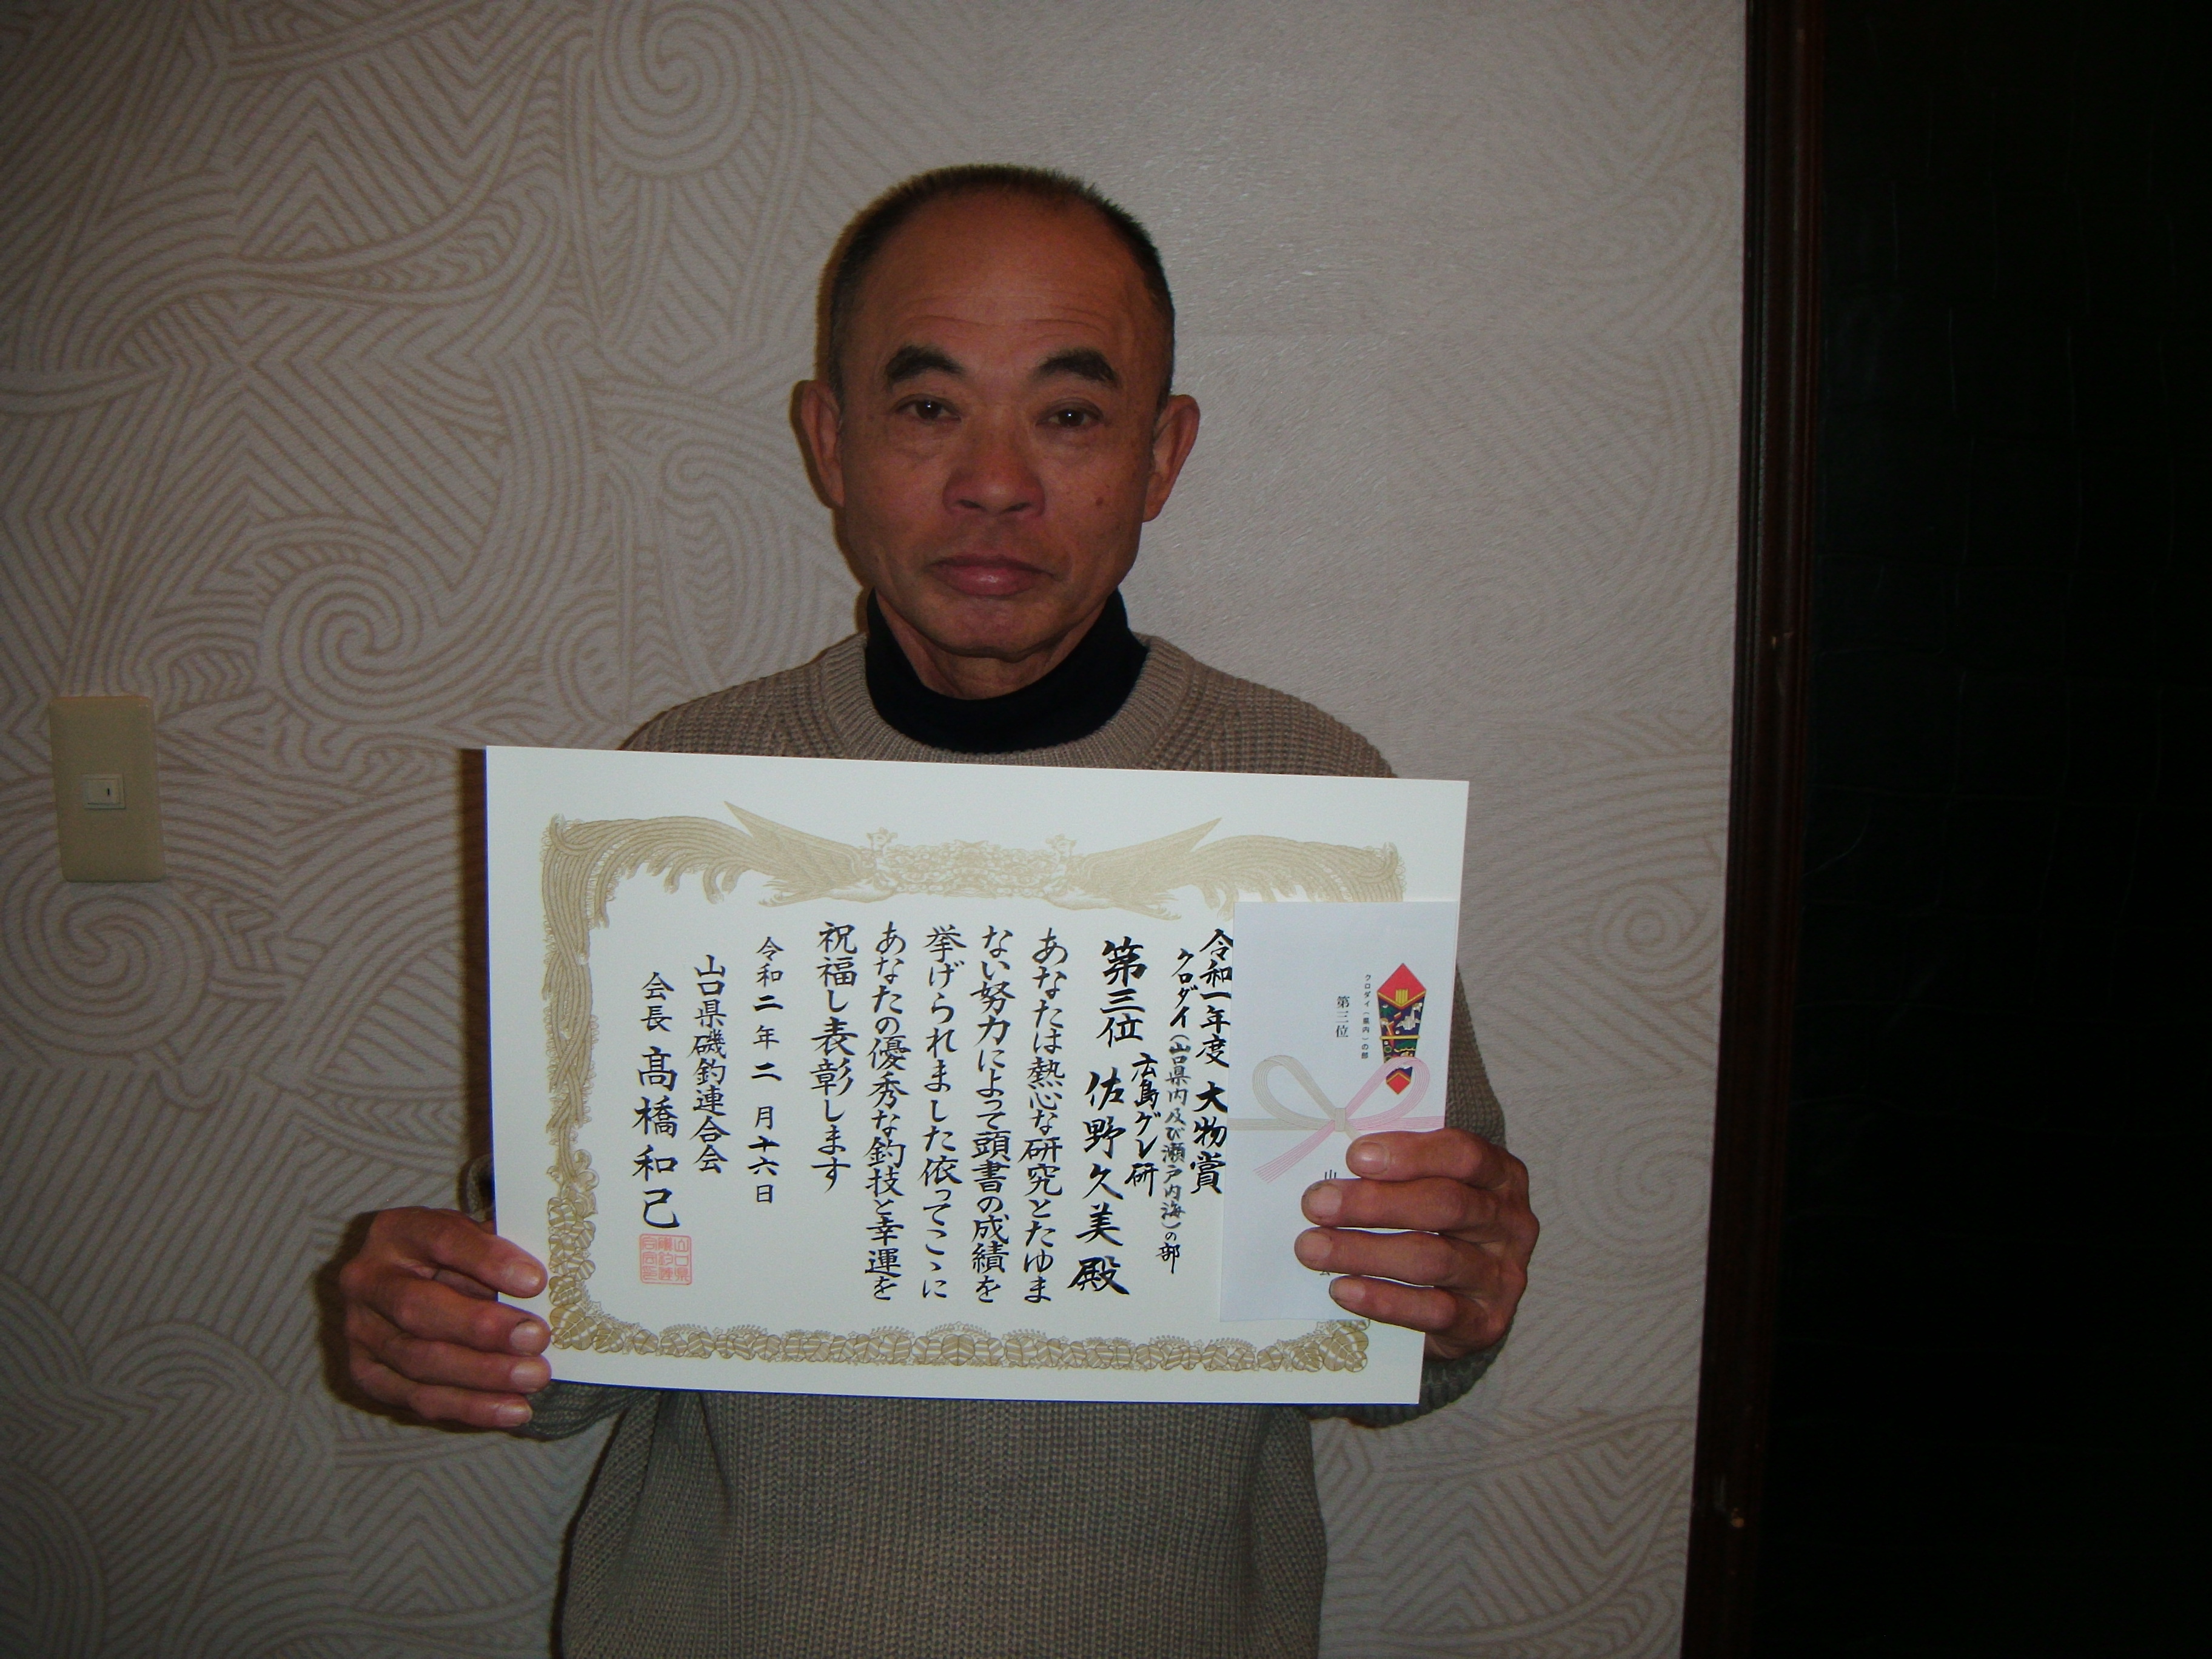 クロダイ(県内)の部
第三位
山
令和一年度 大物賞
クロダイ(山口県内及び瀬戸内海)の部
広島グレ研
第三位 佐野久美殿
あなたは熱心な研究とたゆま
ない努力によって頭書の成績を
挙げられました依ってここに
あなたの優秀な釣技と幸運を
祝福し表彰します
令和二年二月十六日
山口県磯釣連合会
会長 髙橋和己